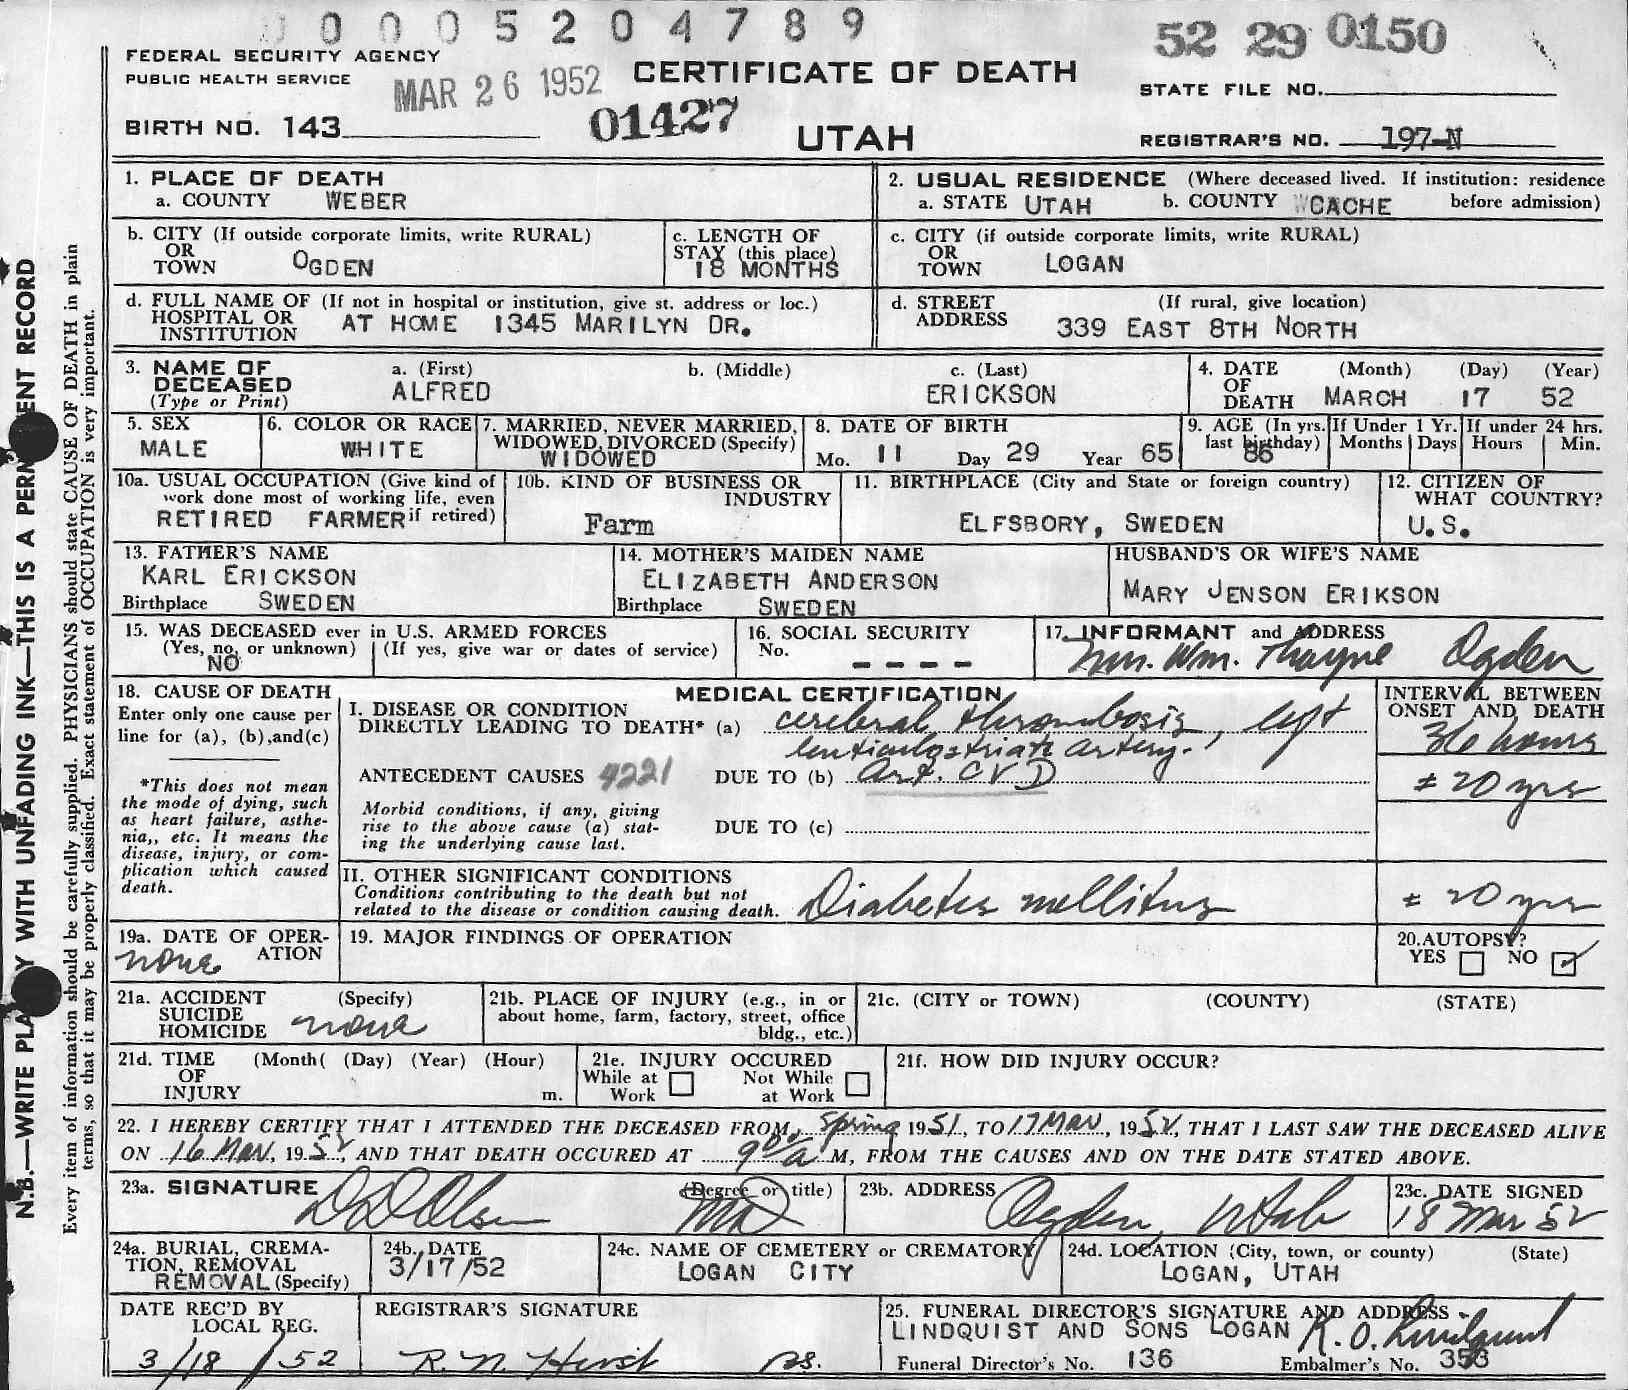 0 0 0 5 2 0 4 7 8 9
52 29 0150
FEDERAL SECURITY AGENCY
PUBLIC HEALTH SERVICE
MAR 26 1952
CERTIFICATE OF DEATH
STATE FILE NO.
BIRTH NO. 143
01427
UTAH
REGISTRAR'S NO. 197-N
N.B.—WRITE PLAINLY WITH UNFADING INK—THIS IS A PERMANENT RECORD
Every item of information should be carefully supplied. PHYSICIANS should state CAUSE OF DEATH in plain
terms, so that it may be properly classified. Exact statement of OCCUPATION is very important.
1. PLACE OF DEATH
a. COUNTY WEBER
2. USUAL RESIDENCE (Where deceased lived. If institution: residence
a. STATE UTAH b. COUNTY CACHE before admission)
b. CITY (If outside corporate limits, write RURAL)
OR
TOWN OGDEN
c. LENGTH OF
STAY (this place)
18 MONTHS
c. CITY (if outside corporate limits, write RURAL)
OR
TOWN LOGAN
d. FULL NAME OF (If not in hospital or institution, give st. address or loc.)
HOSPITAL OR
INSTITUTION AT HOME 1345 MARILYN DR.
d. STREET (If rural, give location)
ADDRESS 339 EAST 8TH NORTH
3. NAME OF
DECEASED
(Type or Print)
a. (First) b. (Middle) c. (Last)
ALFRED ERICKSON
4. DATE (Month) (Day) (Year)
OF
DEATH MARCH 17 52
5. SEX
MALE
6. COLOR OR RACE
WHITE
7. MARRIED, NEVER MARRIED,
WIDOWED, DIVORCED (Specify)
WIDOWED
8. DATE OF BIRTH
Mo. 11 Day 29 Year 65
9. AGE (In yrs.
last birthday)
86
If Under 1 Yr.
Months Days
If under 24 hrs.
Hours Min.
10a. USUAL OCCUPATION (Give kind of
work done most of working life, even
RETIRED FARMER if retired)
10b. KIND OF BUSINESS OR
INDUSTRY
Farm
11. BIRTHPLACE (City and State or foreign country)
ELFSBORY, SWEDEN
12. CITIZEN OF
WHAT COUNTRY?
U.S.
13. FATHER'S NAME
KARL ERICKSON
Birthplace SWEDEN
14. MOTHER'S MAIDEN NAME
ELIZABETH ANDERSON
Birthplace SWEDEN
HUSBAND'S OR WIFE'S NAME
MARY JENSON ERIKSON
15. WAS DECEASED ever in U.S. ARMED FORCES
(Yes, no, or unknown) (If yes, give war or dates of service)
NO
16. SOCIAL SECURITY
No. - - - -
17. INFORMANT and ADDRESS
Mrs. Wm. Thayne Ogden
18. CAUSE OF DEATH
Enter only one cause per
line for (a), (b), and (c)
*This does not mean
the mode of dying, such
as heart failure, asthe-
nia,, etc. It means the
disease, injury, or com-
plication which caused
death.
MEDICAL CERTIFICATION
I. DISEASE OR CONDITION
DIRECTLY LEADING TO DEATH* (a) cerebral thrombosis, left
lenticulostriate artery.
ANTECEDENT CAUSES 4221 DUE TO (b) Art. CVD
Morbid conditions, if any, giving
rise to the above cause (a) stat-
ing the underlying cause last.
DUE TO (c)
INTERVAL BETWEEN
ONSET AND DEATH
36 hours
± 20 yrs
II. OTHER SIGNIFICANT CONDITIONS
Conditions contributing to the death but not
related to the disease or condition causing death. Diabetes mellitus
± 20 yrs
19a. DATE OF OPER-
ATION
none
19. MAJOR FINDINGS OF OPERATION
20. AUTOPSY?
YES NO ✓
21a. ACCIDENT (Specify)
SUICIDE
HOMICIDE none
21b. PLACE OF INJURY (e.g., in or
about home, farm, factory, street, office
bldg., etc.)
21c. (CITY or TOWN) (COUNTY) (STATE)
21d. TIME (Month( (Day) (Year) (Hour)
OF
INJURY m.
21e. INJURY OCCURED
While at Not While
Work at Work
21f. HOW DID INJURY OCCUR?
22. I HEREBY CERTIFY THAT I ATTENDED THE DECEASED FROM, Spring 1951, TO 17 Mar, 1952, THAT I LAST SAW THE DECEASED ALIVE
ON 16 Mar, 1952, AND THAT DEATH OCCURED AT 9 00 a M, FROM THE CAUSES AND ON THE DATE STATED ABOVE.
23a. SIGNATURE (Degree or title)
D D Olsen MD
23b. ADDRESS
Ogden, Utah
23c. DATE SIGNED
18 Mar 52
24a. BURIAL, CREMA-
TION, REMOVAL
REMOVAL (Specify)
24b. DATE
3/17/52
24c. NAME OF CEMETERY or CREMATORY
LOGAN CITY
24d. LOCATION (City, town, or county) (State)
LOGAN, UTAH
DATE REC'D BY
LOCAL REG.
3/18/52
REGISTRAR'S SIGNATURE
R. N. Hirst
25. FUNERAL DIRECTOR'S SIGNATURE AND ADDRESS
LINDQUIST AND SONS LOGAN R. O. Lindquist
Funeral Director's No. 136 Embalmer's No. 353